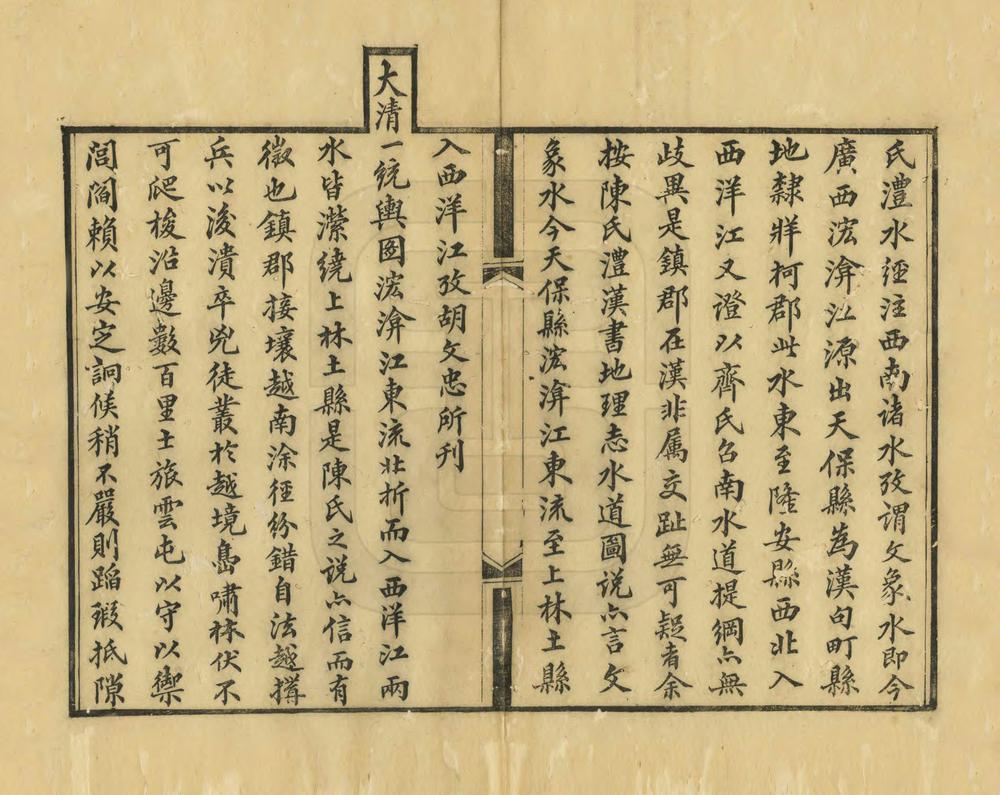 氏澧水經注西南諸水攷謂文象水即今
廣西浤渰江源出天保縣為漢句町縣
地隸牂柯郡此水東至隆安縣西北入
西洋江又證以齊氏召南水道提綱亦無
歧異是鎮郡在漢非属交趾無可疑者余
按陳氏澧漢書地理志水道圖说亦言文
象水今天保縣浤渰江東流至上林土縣
入西洋江攷胡文忠所刊
大清一統輿圖浤渰江東流北折而入西洋江兩
水皆瀠繞上林土縣是陳氏之说亦信而有
徵也鎮郡接壤越南涂徑紛錯自法越搆
兵以後潰卒兇徒叢於越境嵒嘯林伏不
可爬梭沿邊數百里士旅雲屯以守以禦
閭閻賴以安定詗候稍不嚴則蹈瑕抵隙